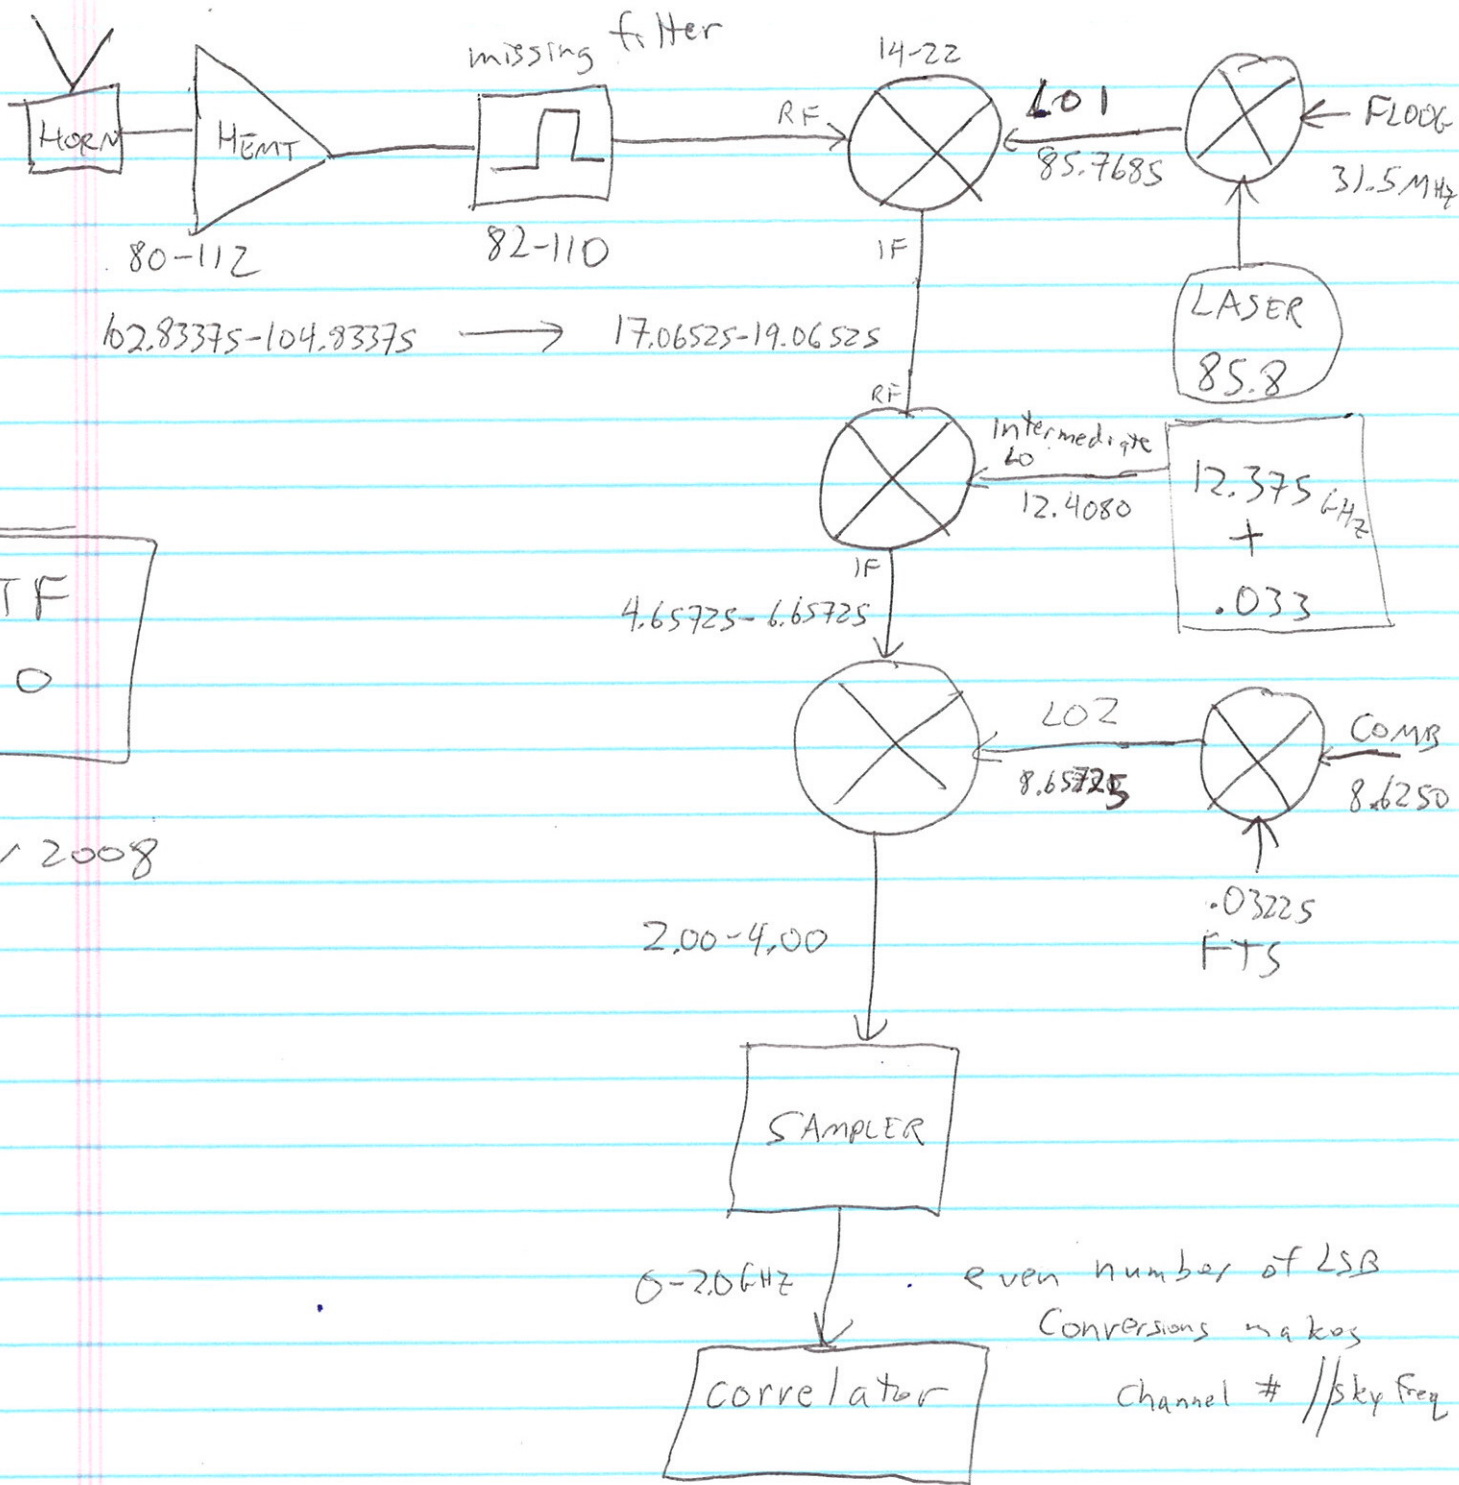 missing filter
14-22
HORN
HEMT
RF
LO1
85.7685
FLOOG
31.5 MHz
80-112
82-110
IF
LASER
85.8
102.83375-104.83375 → 17.06525-19.06525
RF
Intermediate
LO
12.4080
12.375 GHz
+
.033
IF
4.65725-6.65725
TF
O
LO2
8.65725
COMB
8.6250
/ 2008
.03225
FTS
2.00-4.00
SAMPLER
0-2.0 GHz
even number of LSB
Conversions makes
Channel # // sky freq
correlator